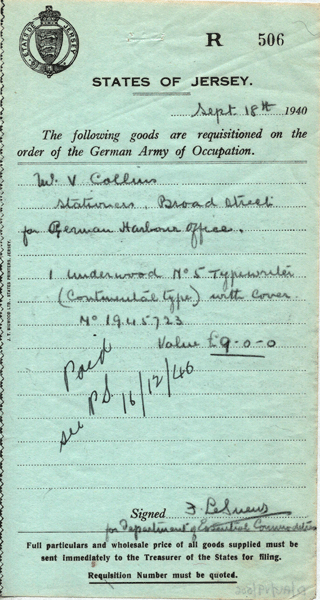 STATES OF JERSEY
R 506
STATES OF JERSEY.
Sept 18th 1940
The following goods are requisitioned on the
order of the German Army of Occupation.
Mr V Collins
Stationers, Broad Street
for German Harbour Office.
1 Underwood No 5 Typewriter
(Continental type) with cover.
No 1945723
Value £9-0-0
Paid
see PS 16/12/46
Signed
for Department of Essential Commodities
Full particulars and wholesale price of all goods supplied must be
sent immediately to the Treasurer of the States for filing.
Requisition Number must be quoted.